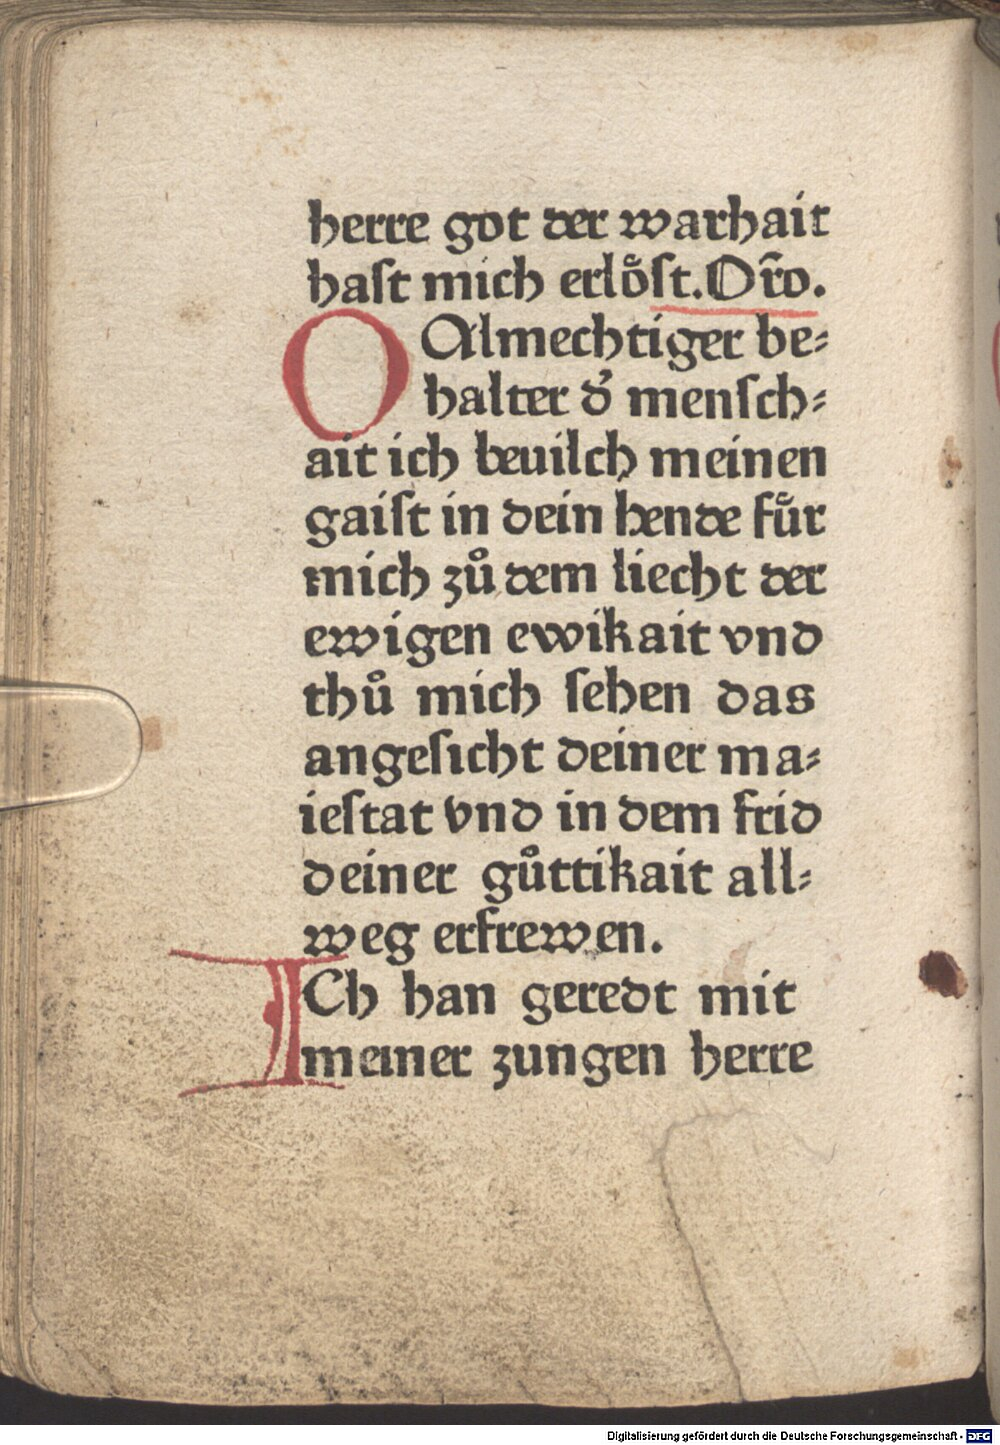 herre got der warhait
haſt mich erloͤſt. Or̄o.
O Almechtiger be⸗
halter dʾ menſch⸗
ait ich beuilch meinen
gaiſt in dein hende fuͤr
mich zuͦ dem liecht der
ewigen ewikait vnd
thuͦ mich ſehen das
angeſicht deiner ma⸗
ieſtat vnd in dem frid
deiner guͦttikait all⸗
weg erfrewen.
ICh han geredt mit
meiner zungen herre
Digitalisierung gefördert durch die Deutsche Forschungsgemeinschaft - DFG